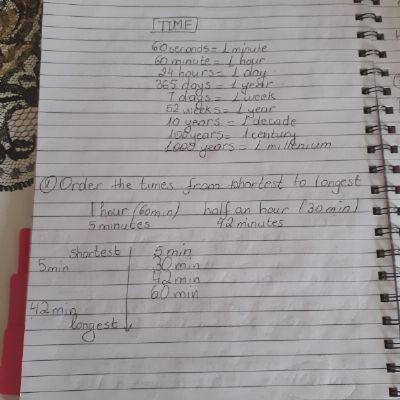 TIME
60 seconds = 1 minute
60 minute = 1 hour
24 hours = 1 day
365 days = 1 year
7 days = 1 week
52 weeks = 1 year
10 years = 1 decade
100 years = 1 century
1000 years = 1 millenium
1) Order the times from shortest to longest
1 hour (60 min) half an hour (30 min)
5 minutes 42 minutes
shortest 5 min
5 min 30 min
42 min
60 min
42 min
longest